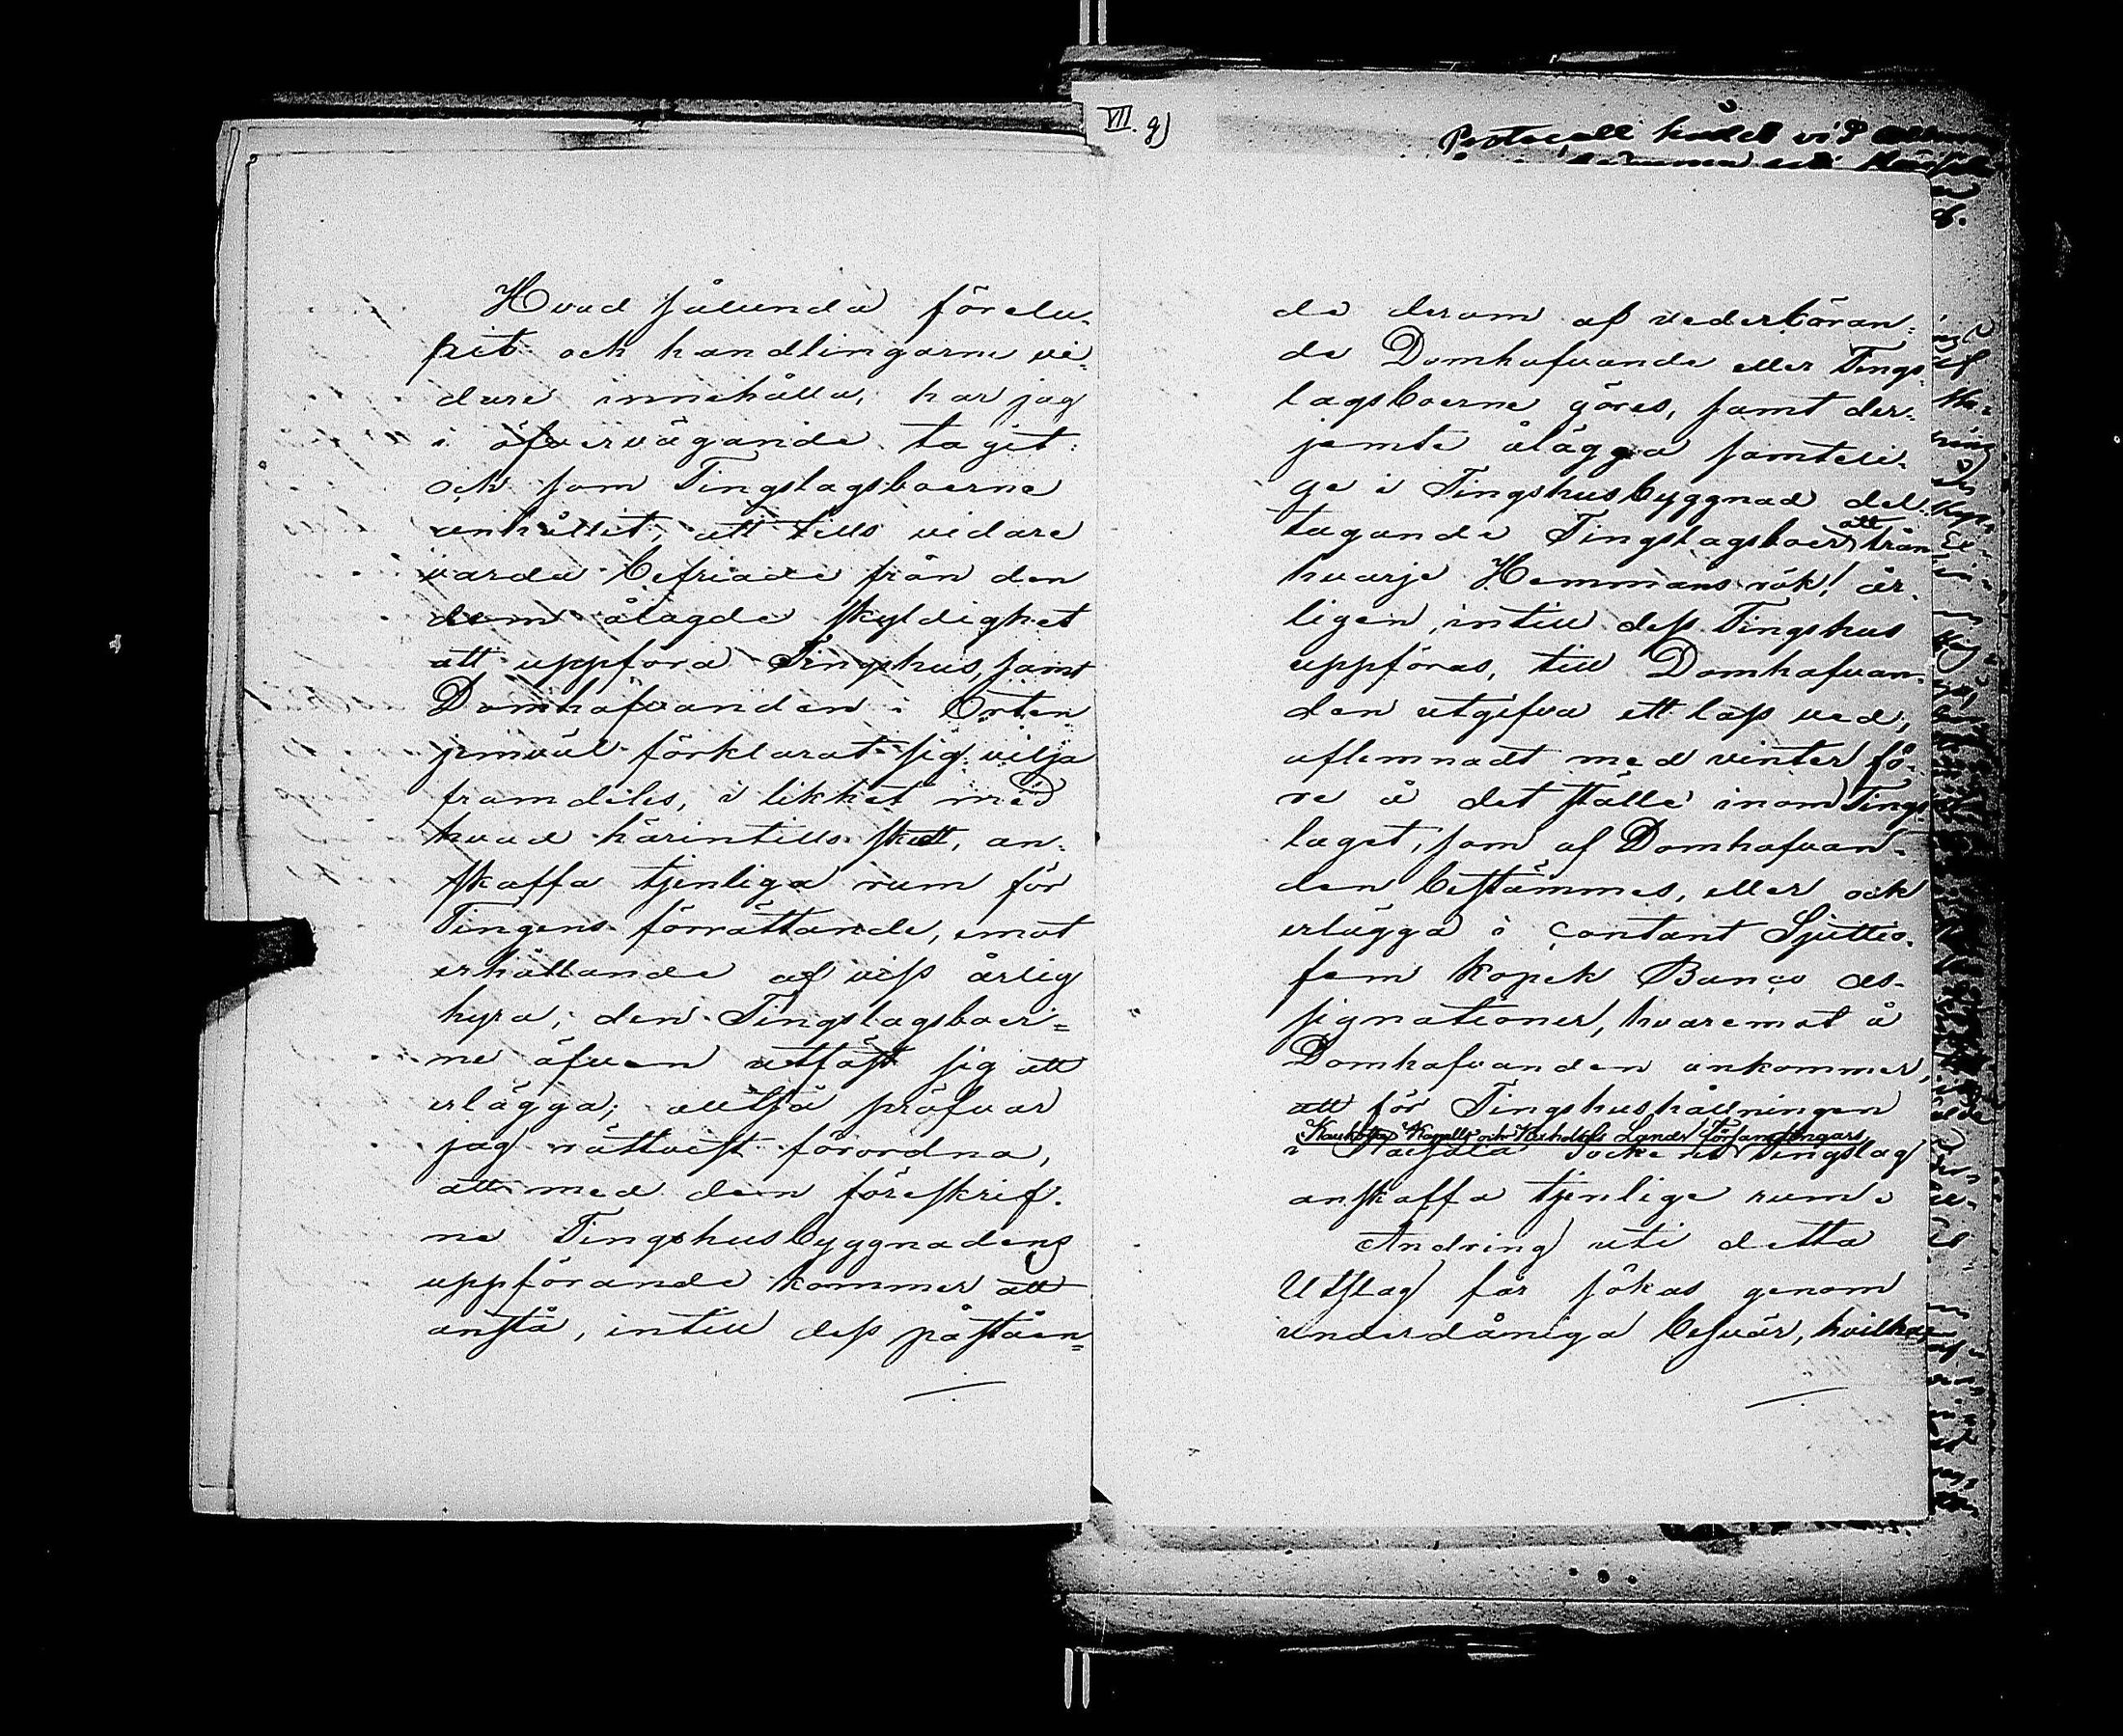 Hvad sålunda förelu-
pit och handlingarne vi-
dare innehålla, har jag
i öfvervägande tagit:
och som Tingslagsboerne
anhållit, att tills vidare
varda befriade från den
dem ålagde skyldighet
att uppföra Tingshus, samt
Domhafvanden i Orten
jemväl förklarat sig vilja
framdeles, i likhet med
hvad härintills skett, an-
skaffa tjenliga rum för
Tingens förrättande, emot
erhållande af viss årlig
hyra, den Tingslagsboer=
ne äfven utfäst sig att
erlägga; alltså pröfvar
jag rättvist förordna,
att med den föreskrif-
ne Tingshusbyggnadens
uppförande kommer att
anstå, intill dess påståen=
VII. g)
Protocoll hållet vid
de derom af vederböran-
de Domhafvande eller Tings-
lagsboerne göres, samt der-
jemte ålägga samteli-
ge i Tingshusbyggnad del-
tagande Tingslagsboer att från
hvarje Hemmans rök! år-
ligen, intill dess Tingshus
uppföras, till Domhafvan-
den utgifva ett lass ved,
aflemnadt med vinter fö-
re å det ställe inom Tings
laget, som af Domhafvan-
den bestämmes, eller ock
erlägga i contant Sjuttio-
fem kopek Banco as-
signationer, hvaremot å
Domhafvanden ankommer,
att för Tingshushållningen
Kaukola Kapells och Kexholms Lands Församlingars
i Räisälä Sockens Tingslag
anskaffa tjenlige rum.
Ändring uti detta
Utslag får sökas genom
underdåniga besvär, hvilka,